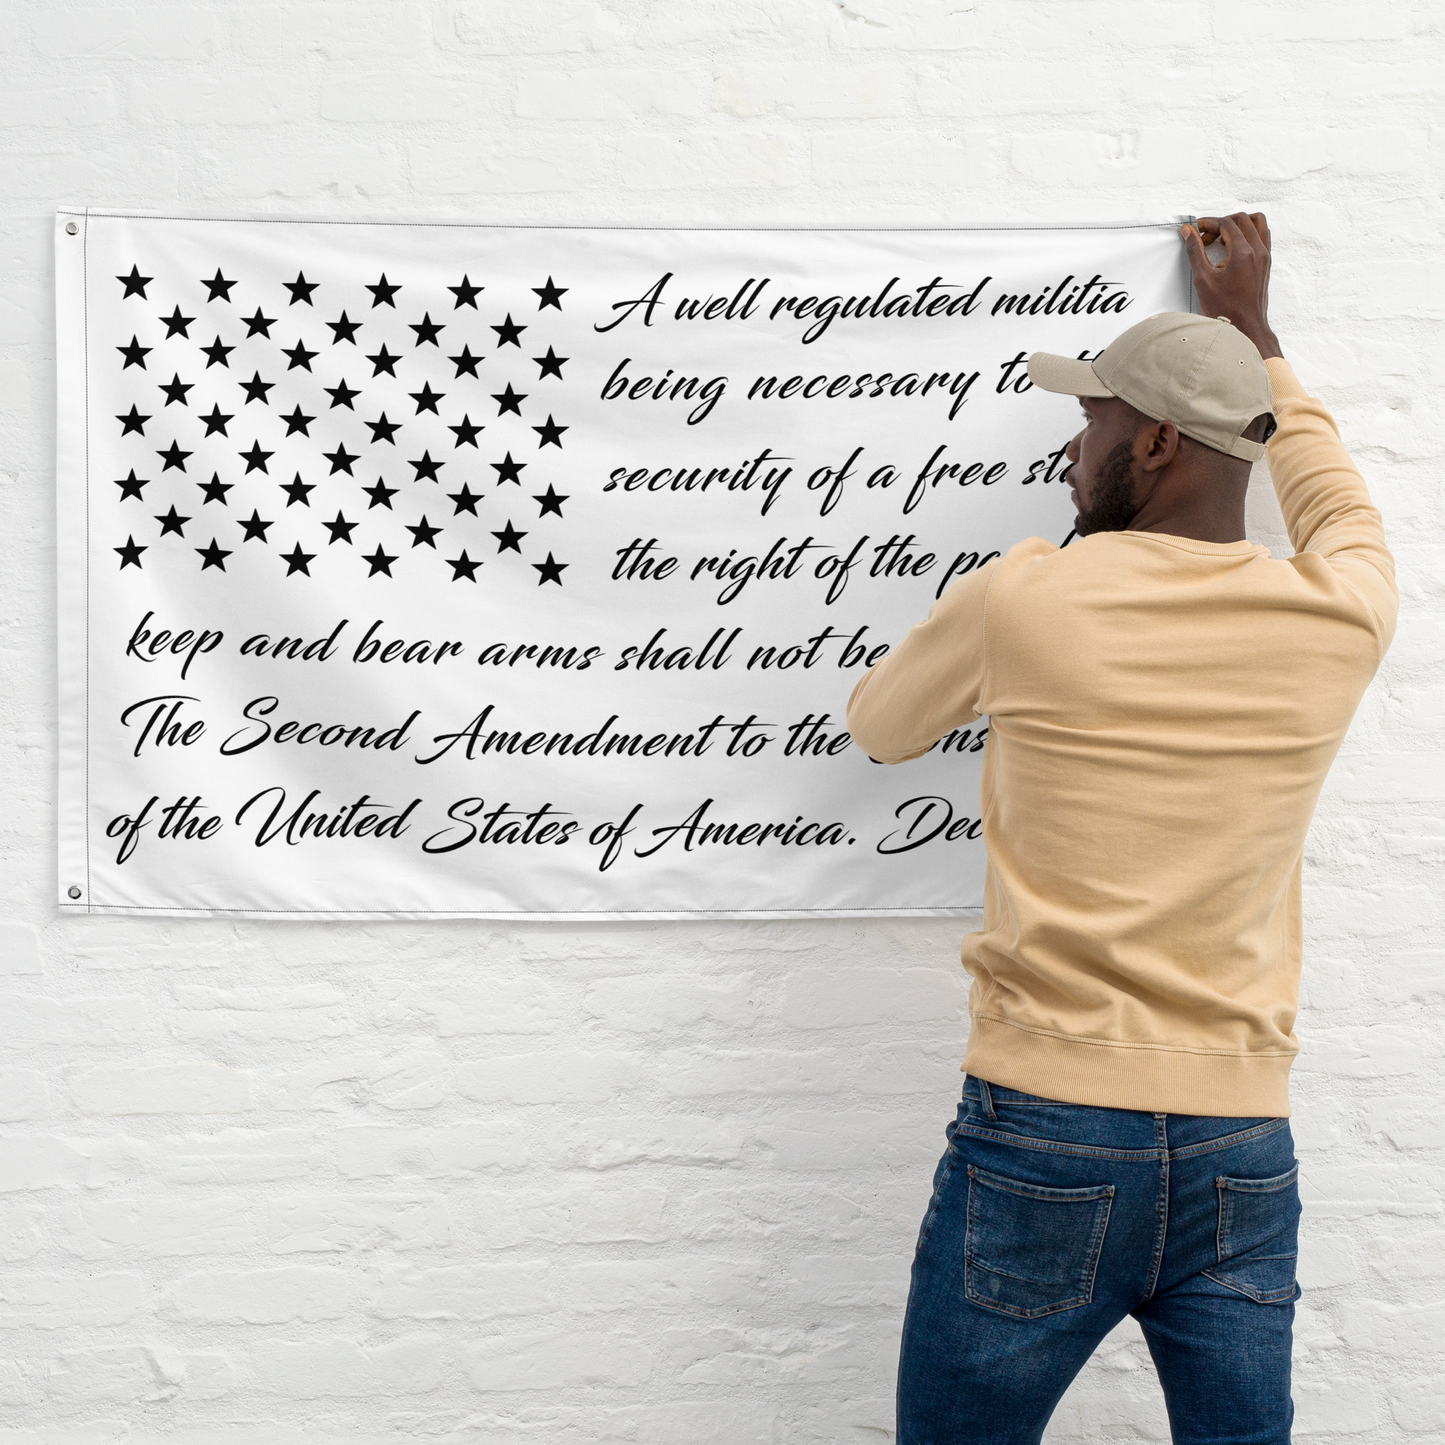 A well regulated militia
being necessary to
security of a free
the right of the
keep and bear arms shall not be
The Second Amendment to the
of the United States of America.